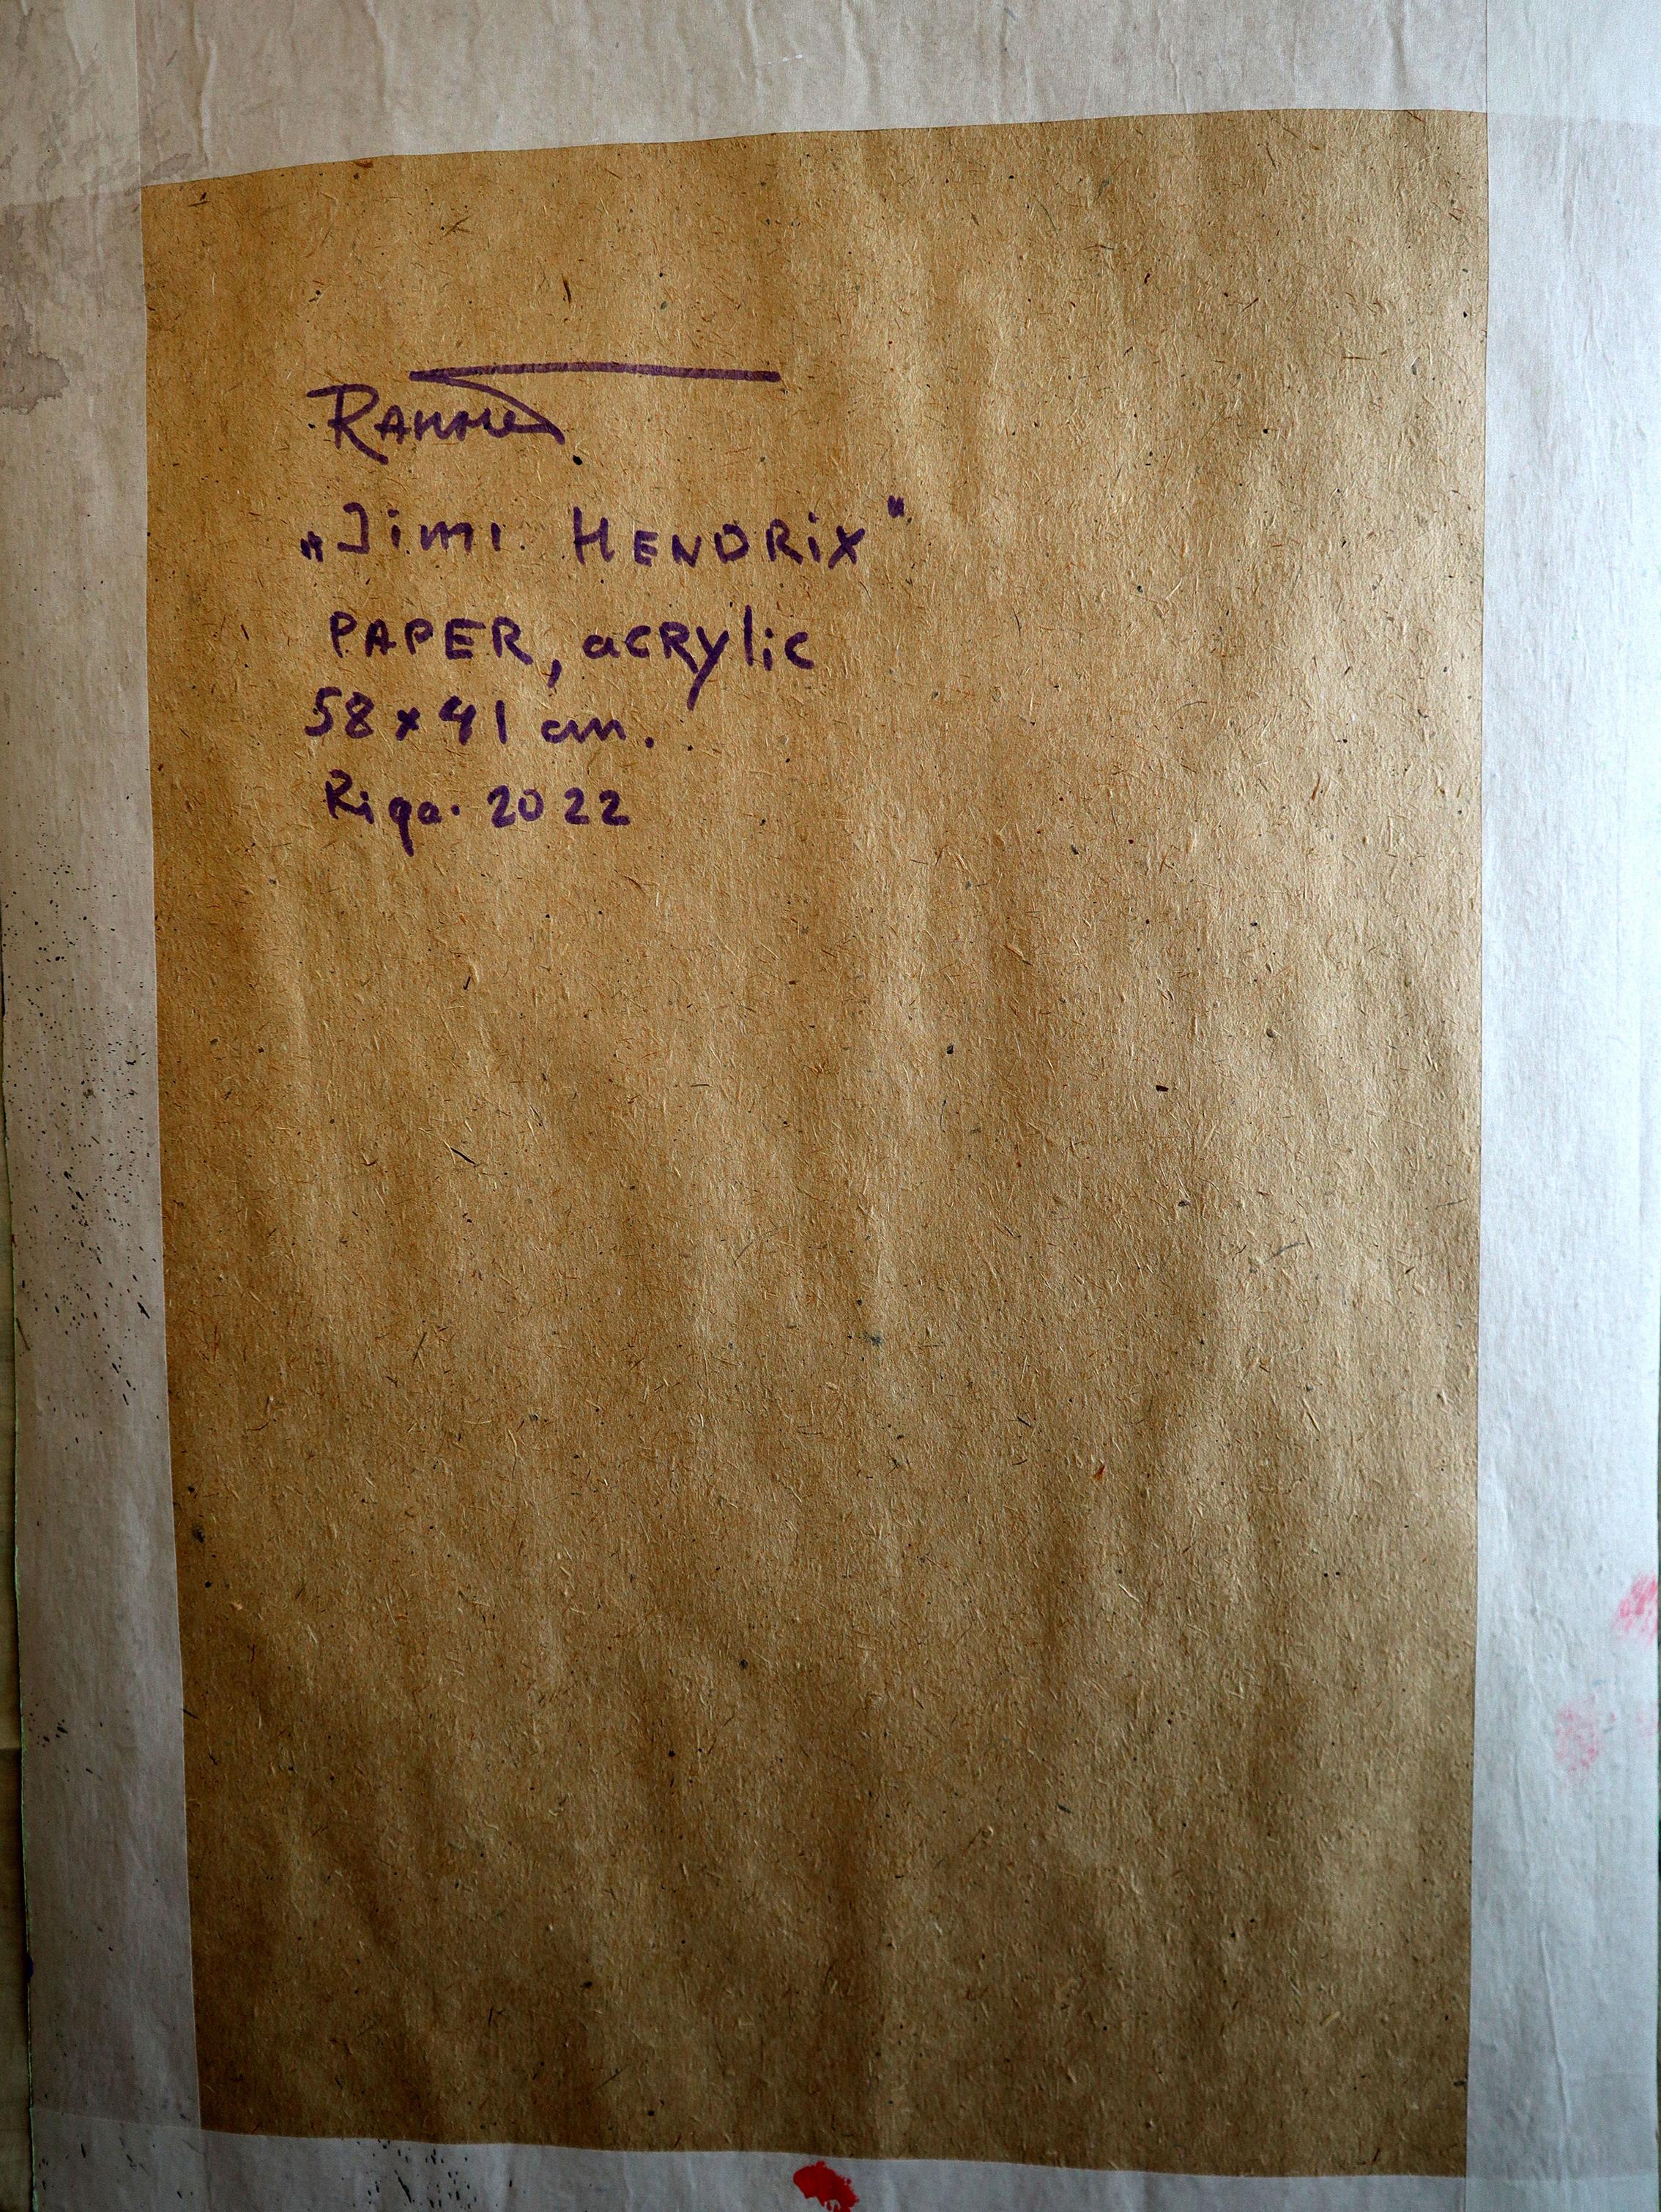 „Jimi HENDRiX"
PAPER, acrylic
58 x 41 cm.
Riga. 2022